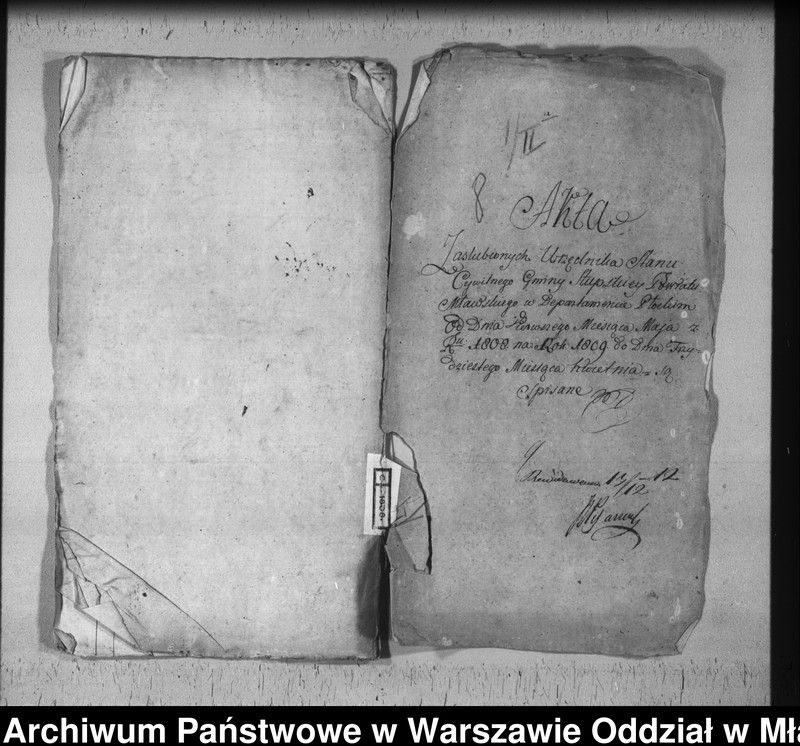 1/II
8 Akta
Zaslubionych Urzędnika Stanu
Cywilnego Gminy Słupskiey Powiatu
Mławskiego w Departamencie Płockim
Od Dnia Pierwszego Miesiąca Maja
1808 na Rok 1809 do Dnia Trzy-
dziestego Miesiąca Kwietnia są
Spisane
12/12 12
Archiwum Państwowe w Warszawie Oddział w Mła